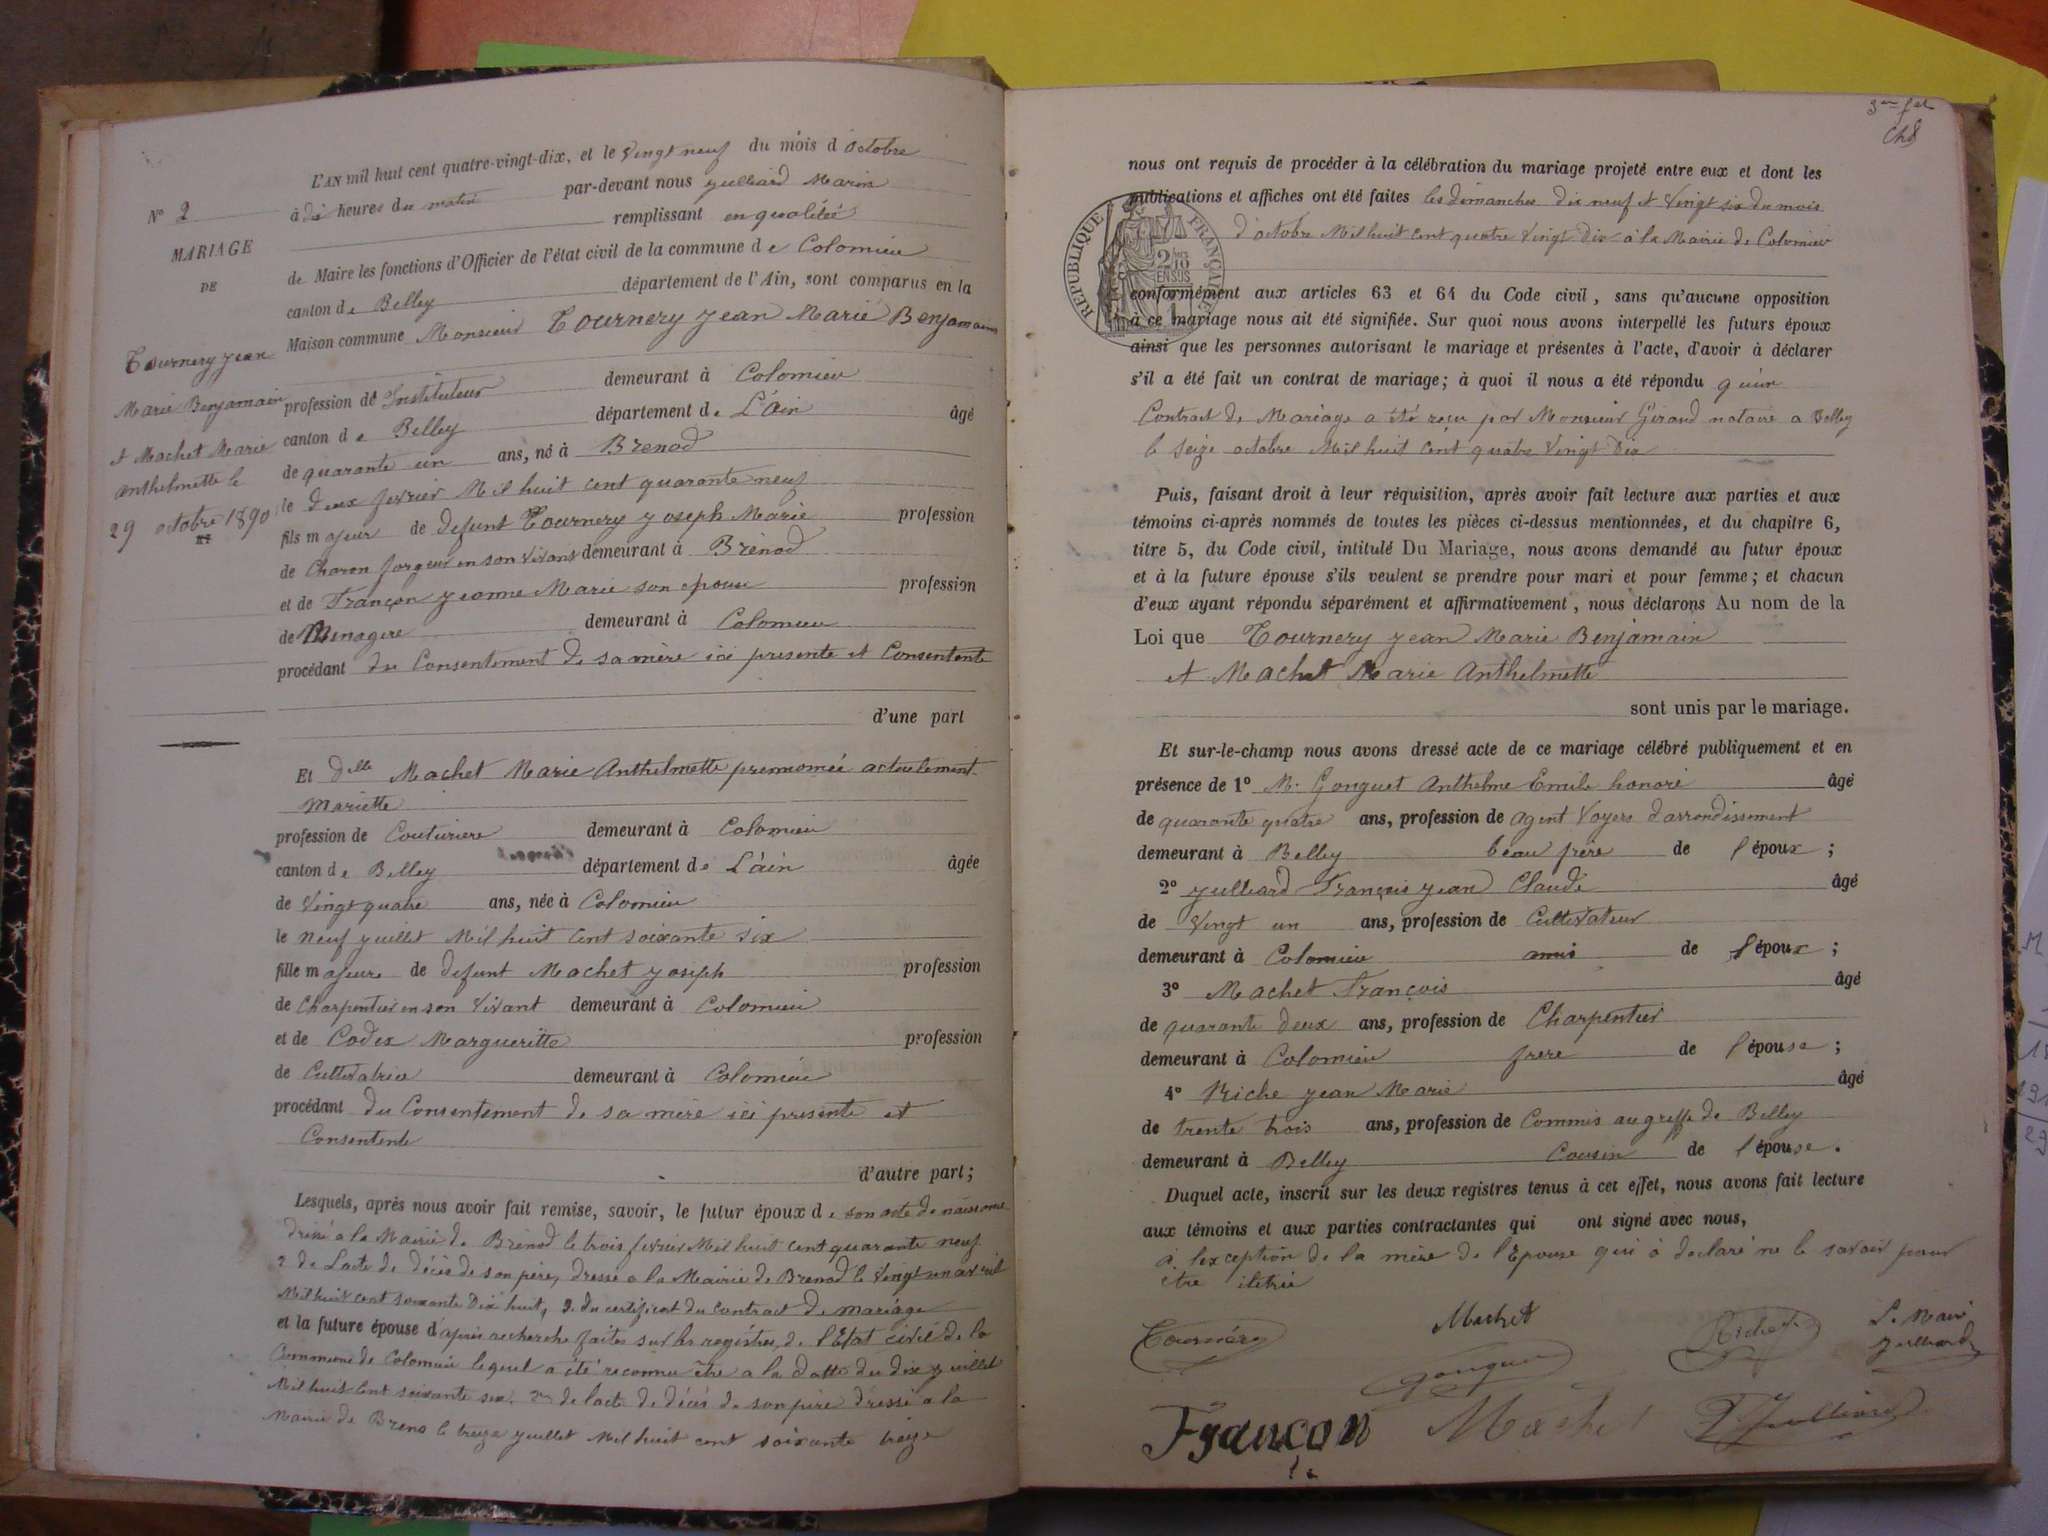 L'AN mil huit cent quatre-vingt-dix, et le Vingt neuf du mois d'octobre
à dix heures du matin par-devant nous Julliard Marin
remplissant en qualitéé
de Maire les fonctions d'Officier de l'état civil de la commune de Colomieu
canton de Belley département de l'Ain, sont comparus en la
Maison commune Monsieur Tournery Jean Marie Benjamain
profession de Instituteur demeurant à Colomieu
canton de Belley département de L'ain âgé
de quarante un ans, né à Brenod
le deux fevrier Mil huit cent quarante neuf
fils majeur de defunt Tournery Joseph Marie profession
de Charon forgeur en son vivant demeurant à Brénod
et de Françon Jeanne Marie son epouse profession
de Menagere demeurant à Colomieu
procédant du Consentement de sa mère ici presente et Consentente
d'une part
N° 2
MARIAGE
DE
Tournery Jean
Marie Benjamain
et Machet Marie
Anthelmette le
29 octobre 1890
Et Delle Machet Marie Anthelmette prennomée actuelement
Mariette
profession de Couturiere demeurant à Colomieu
canton de Belley département de L'ain âgée
de Vingt quatre ans, née à Colomieu
le neuf Juillet Mil huit cent soixante six
fille majeure de defunt Machet Joseph profession
de Charpentier en son Vivant demeurant à Colomieu
et de Codex Margueritte profession
de Cultivatrice demeurant à Colomieu
procédant du Consentement de sa mere ici presente et
Consentente
d'autre part;
Lesquels, après nous avoir fait remise, savoir, le futur époux de son acte de naissance
dréssé a la Mairie de Brénod le trois fevrier Mil huit cent quarante neuf
2 de L'acte de décès de son père, dressé a la Mairie de Brenod le Vingt un avril
Mil huit cent soixante Dix huit, 3. du certificat du Contract de mariage
et la future épouse d'aprés recherche faites sur les registres de l'Etat civil de la
Commune de Colomieu lequel a été reconnu être a la datte du dix Juillet
Mil huit Cent soixante six. 2 de l'acte de décés de son pére dréssé a la
Mairie de Breno le treize Juillet Mil huit cent soixante treize
3en fet
ch8
nous ont requis de procéder à la célébration du mariage projeté entre eux et dont les
publications et affiches ont été faites les dimanches dix neuf et Vingt six du mois
d'octobre Mil huit cent quatre Vingt Dix a la Mairie de Colomieu
RÉPUBLIQUE FRANÇAISE
2/10
EN SUS
conformément aux articles 63 et 64 du Code civil, sans qu'aucune opposition
à ce mariage nous ait été signifiée. Sur quoi nous avons interpellé les futurs époux
ainsi que les personnes autorisant le mariage et présentes à l'acte, d'avoir à déclarer
s'il a été fait un contrat de mariage; à quoi il nous a été répondu qu'un
Contract de Mariage a été reçu par Monsieur Girand notaire a Belley
le seize octobre Mil huit cent quatre Vingt Dix
Puis, faisant droit à leur réquisition, après avoir fait lecture aux parties et aux
témoins ci-après nommés de toutes les pièces ci-dessus mentionnées, et du chapitre 6,
titre 5, du Code civil, intitulé Du Mariage, nous avons demandé au futur époux
et à la future épouse s'ils veulent se prendre pour mari et pour femme; et chacun
d'eux ayant répondu séparément et affirmativement, nous déclarons Au nom de la
Loi que Tournery Jean Marie Benjamain
et Machet Marie Anthelmette
sont unis par le mariage.
Et sur-le-champ nous avons dressé acte de ce mariage célébré publiquement et en
présence de 1° M. Gonguet Anthelme Emile honoré âgé
de quarante quatre ans, profession de agent Voyers d'arrondissement
demeurant à Belley beau frère de l'époux;
2° Julliard François Jean Claude âgé
de Vingt un ans, profession de Cultivateur
demeurant à Colomieu amis de l'époux;
3° Machet François âgé
de quarante deux ans, profession de Charpentier
demeurant à Colomieu frere de l'épouse;
4° Riche Jean Marie âgé
de trente trois ans, profession de Commis au greffe de Belley
demeurant à Belley Cousin de l'épouse.
Duquel acte, inscrit sur les deux registres tenus à cet effet, nous avons fait lecture
aux témoins et aux parties contractantes qui ont signé avec nous,
à l'exception de la mère de l'Epouse qui a declaré ne le savoir pour
être iletrée
Tournéry Machet Riche L. Maire
Julliard
Gonguet
Françon Machet Julliard